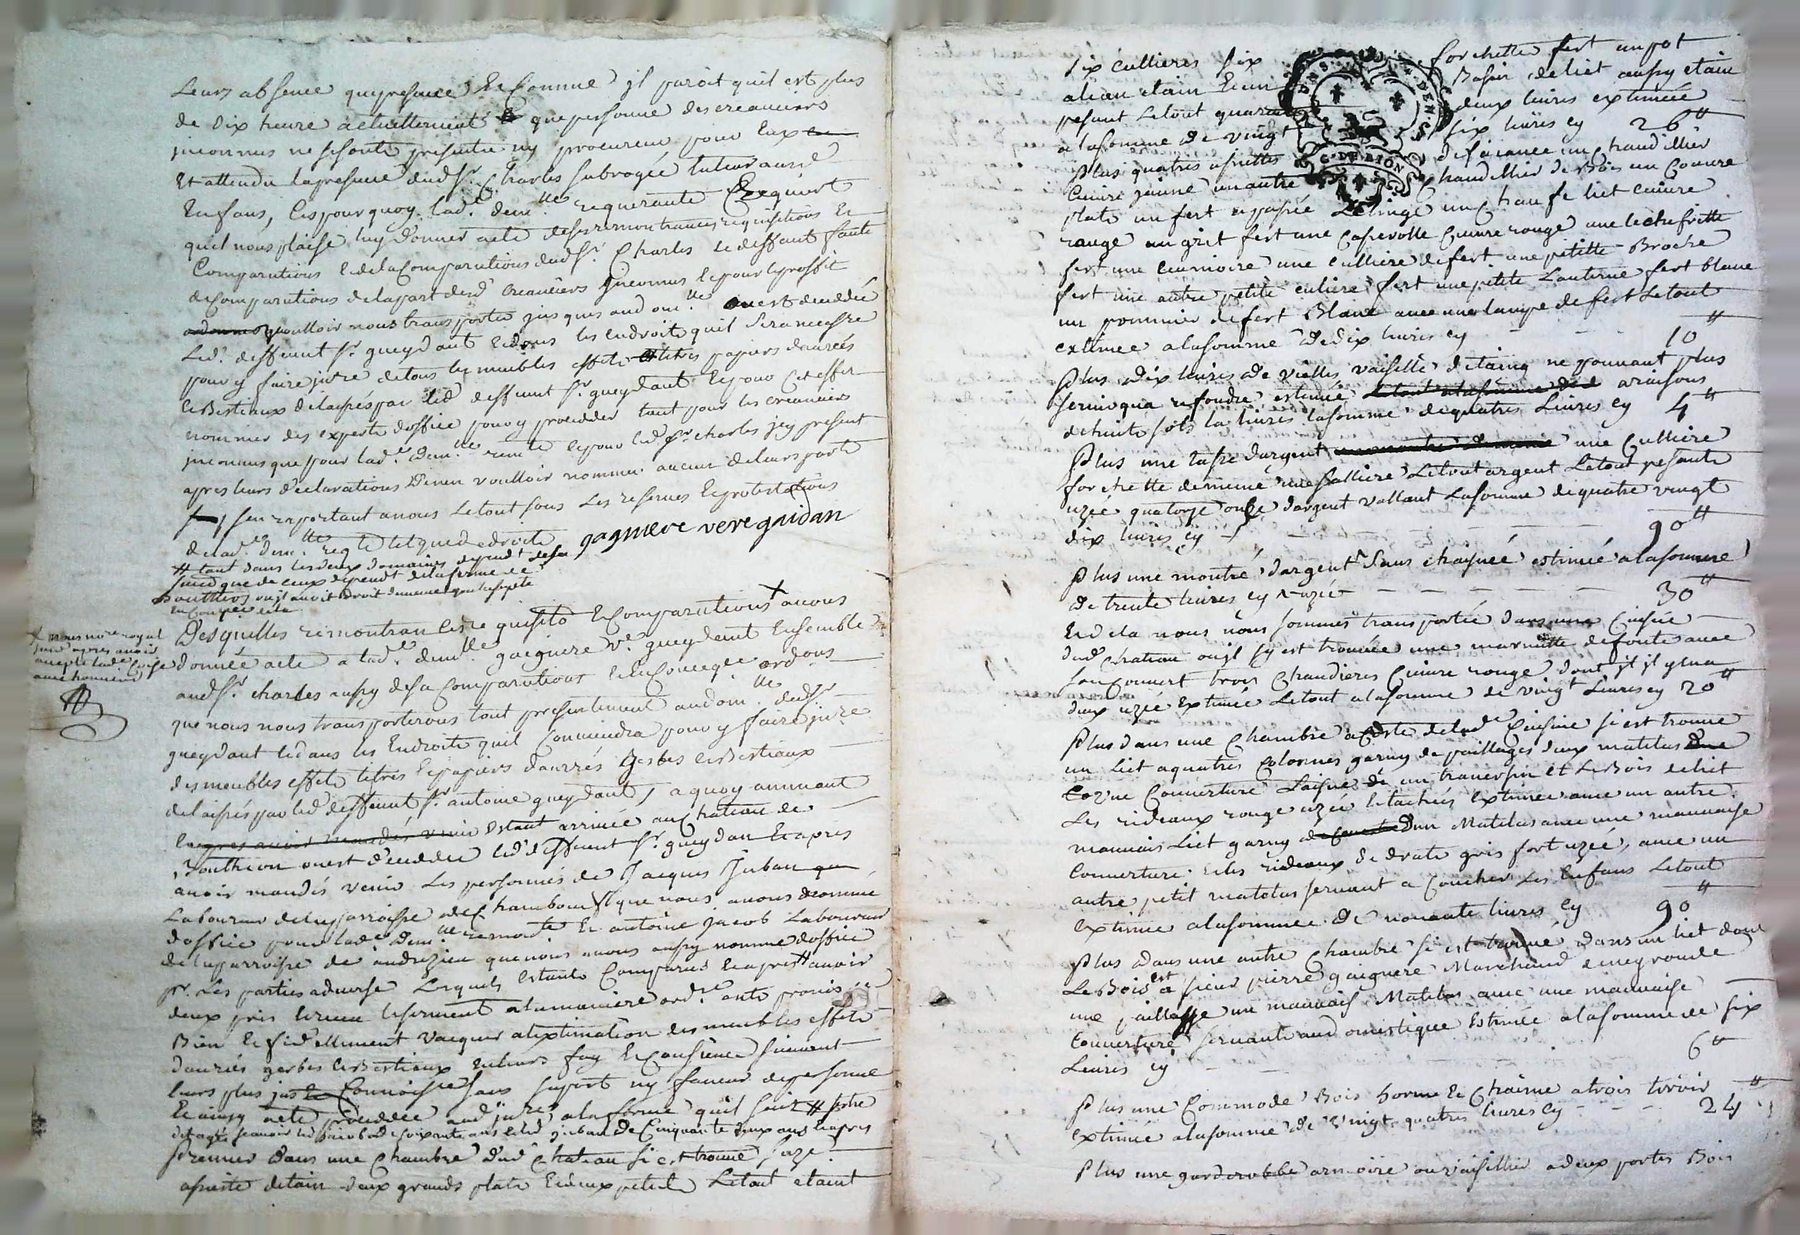 Leurs absence que presance Et Comme il paroit quil est plus
de dix heure actuellement que personne des creanciers
inconnus ne se sont presentée ny procureur pour Eux
Et attendu la presence dud sr. Charles subrogée tuteur ausd
Enfans, Cest pour quoy lad. demlle. requerante Requiert
quil nous plaise luy donner acte de ses remontrances requisitions Et
Comparutions Et de la Comparutions dud sr. Charles Le deffaut faute
de Comparutions de la part desd. Creanciers inconnus Et pour le proffit
voulloir nous transporter jusques aud domlle. ou est deceddé
Led. deffunt sr. gueydant Et dans les Endroits quil sera necessre
pour y faire jnvre de tous les meubles effets titres papiers danrées
Et Bestiaux delaissés par led. deffunt sr. gueydant Et pour Cet effet
nommer des experts doffice pour y proceder tant pour les creanciers
inconnus que pour lad. demlle. remte Et pour led. sr. charles jcy present
apres leurs declarations den vouloir nommer aucun de leurs parts
sen raportant a nous Le tout sous Les reserves Et protestations
de lad. demlle. reqte tels que de droits
gagniere veve gaidan
# tant dans les deux domaines dependt de sa
que de ceux dependt de la ferme de
Southieu ou jl avoit droit
Desquelles remontrances requisito Et Comparutions avons
x nous nore royal
donnée acte a lad. demlle. gaigniere ve. gueydant Ensemble
aud sr. charles aussy de sa Comparutions Et En Conseqce ordons
que nous nous transporterons tout presentement aud domlle. dud sr.
gueydant Et dans les Endroits quil Conviendra pour y faire jnvre
des meubles effets titres Et papiers danrés Gerbes Et Bestiaux
delaissés par led. deffunt sr. antoine gueydant, a quoy aumoant
Estant arrivée au Chateau de
Southieu ou est deceddée led. deffunt sr. gueydan Et apres
avoir mandés venir Les personnes de Jacques Juban
Laboureur de la parroisse de Chambeuf que nous avons nommé
doffice pour lad. demlle. remonte Et antoine Jacob Laboureur
de la parroisse de andrezieu que nous avons aussy nommé doffice
pr. Les parties adverse Lesquels Estants Comparus Et apres avoir
deux pris Et receu le serment a la maniere ordre. ont promis
Bien Et fidellement vacquer a lextimation des meubles effets
danrées gerbes Et Bestiaux En leurs foy Et Consience suivant
leurs plus juste Connoissce sans suport ny faveur de personne
Et avons acte procedée aud jnvre a la forme quil suit # pre
de cinquante deux ans Et apres
Premier dans une Chambre dud. Chateau si est trouvé saze
assiette detain deux grands plats Et deux petits Le tout etaint
Six cullieres six forchettes fert un pot
a leau etain Et un Bassin de liet aussy etain
pesant Le tout quarante deux livres extimée
a la somme de vingt six livres cy 26#
Plus quatres assiettes de fayance un chandillier
Cuivre jaune un autre Chandillier de Bois un Couvre
plats un fert a passée Le linge un Chaufe liet Cuivre
rouge un gril fert une Casserolle Cuivre rouge une lechefritte
fert une Ecumoire une culliere de fert une petitte Broche
fert une autre petite culiere fert une petite Lanterne fert blanc
un pommier de fert Blanc avec une lampe de fert Le tout
extimée a la somme de dix livres cy 10#
Plus dix livres de vielles vaiselle detaing ne pouvant plus
servir qua refondre estimée a raisons
de huits sols la livres la somme de quatres Livres cy 4#
Plus une tasse dargent une Culliere
forchette de meme une Salliere Le tout argent Le tout pesants
uzée quatorze onze dargent vallant La somme de quatre vingt
dix livres cy 90#
Plus une montre dargent sans chaynée estimée a la somme
de trente livres cy uzée 30#
Et de la nous nous sommes transportée dans une Cuisine
dud. Chateau ou jl sy est trouvée une marmitte de fonte avec
son Couvert trois Chaudieres Cuivre rouge dont jl y en a
deux uzée Extimée Le tout a la somme de vingt Livres cy 20#
Plus dans une Chambre a Coste de lad. Cuisine si est trouvé
un Liet a quatres Colonnes garny de paillages deux matelas
Couverture Laisne un traversin Et Le Bois de liet
Les rideaux rouge uzée Et tachées extimée avec un autre
mauvais Liet garny dun Matelas avec une mauvaise
Couverture Et les rideaux de drats gris fort uzée, avec un
autre petit matelas servant a Coucher Les Enfans Le tout
extimée a la somme de nonante livres cy 90#
Plus dans une autre Chambre si est trouvé dans un liet dont
Le Bois est a sieur pierre gaigniere Marchand
une paillasse un mauvais Matelas avec une mauvaise
Couverture servante aux domestique Estimée a la somme de six
Livres cy 6#
Plus une Commode Bois horme Et Chaisne a trois tiroir
extimée a la somme de vingt quatres livres cy 24#
Plus une garderobbe armoire ou vaisillier a deux portes Bois